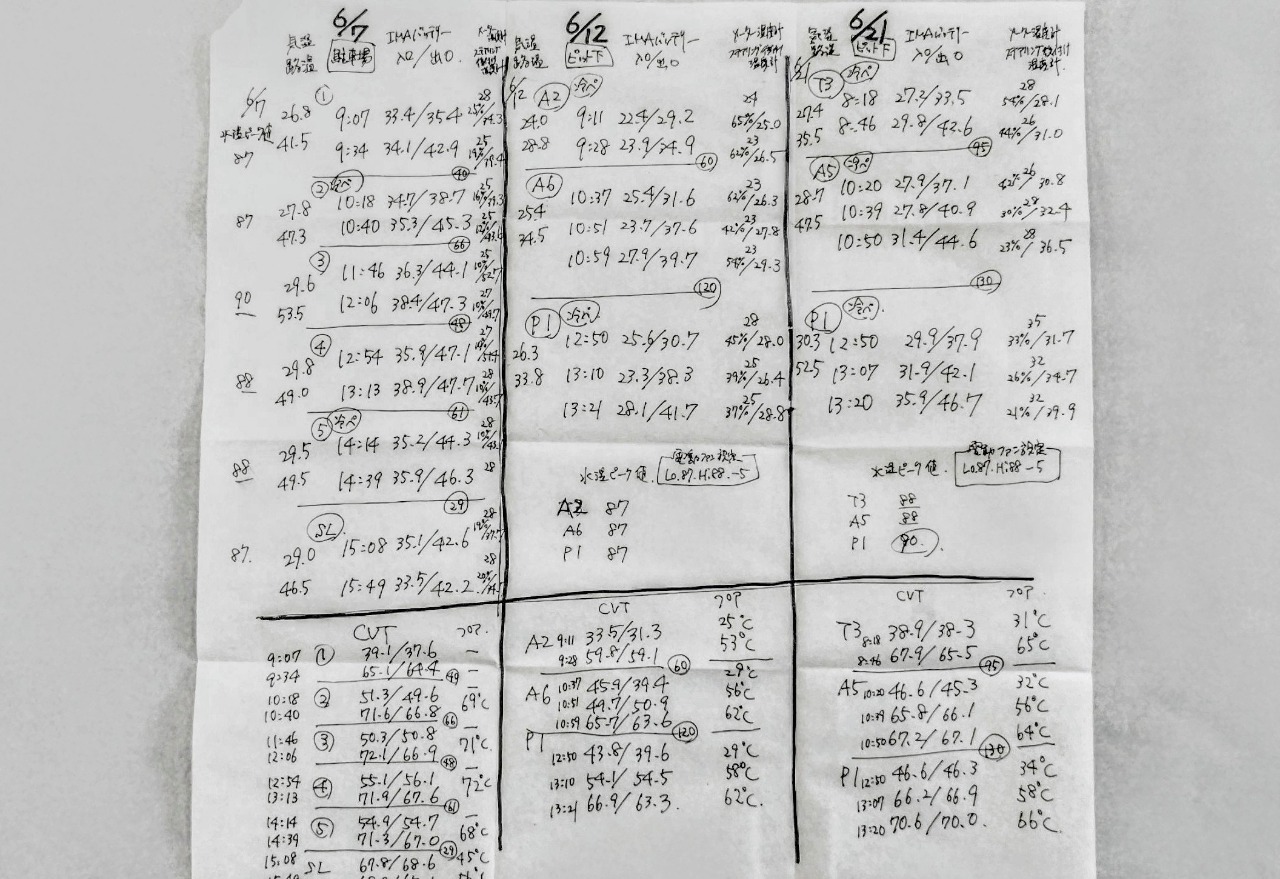 6/7
気温
路温
駐車場
IMAバッテリー
入口/出口
6/7
水温ピーク値
26.8 ① 9:07 33.4/35.4 28
87 41.5 9:34 34.1/42.9 25
② 冷ペ
87 27.8 10:18 34.7/38.7 25
47.3 10:40 35.3/45.3 25
66
③
29.6 11:46 36.3/44.1 25
90 53.5 12:06 38.4/47.3 27
48
④
29.8 12:54 35.9/47.1 27
88 49.0 13:13 38.9/47.7 28
61
⑤ 冷ペ
29.5 14:14 35.2/44.3 28
88 49.5 14:39 35.9/46.3 28
29
SL
87. 29.0 15:08 35.1/42.6 28
46.5 15:49 33.5/42.2 28
CVT フロア.
9:07 ① 39.1/37.6 —
9:34 65.1/64.4 —
49
10:18 ② 51.3/49.6 —
10:40 71.6/66.8 69℃
66
11:46 ③ 50.3/50.8 —
12:06 72.1/66.9 71℃
48
12:54 ④ 55.1/56.1 —
13:13 71.9/67.6 72℃
61
14:14 ⑤ 54.9/54.7 —
14:39 71.3/67.0 68℃
29
15:08 SL 67.8/68.6 45℃
6/12
気温
路温
ピット下
IMAバッテリー
入口/出口
メーター温度計
6/12 A2 冷ペ
24.0 9:11 22.4/29.2 24 65%/25.0
28.8 9:28 23.9/34.9 23 62%/26.5
60
A6
25.4 10:37 25.4/31.6 23 62%/26.3
34.5 10:51 23.7/37.6 23 42%/27.8
10:59 27.9/39.7 23 54%/29.3
120
P1 冷ペ
26.3 12:50 25.6/30.7 28 45%/28.0
33.8 13:10 23.3/38.3 25 39%/26.4
13:21 28.1/41.7 25 37%/28.8
水温ピーク値. 電動ファン設定 Lo.87.Hi88.-5
A2 87
A6 87
P1 87
CVT フロア
A2 9:11 33.5/31.3 25℃
9:28 59.8/59.1 53℃
60
A6 10:37 45.9/39.4 29℃
10:51 49.7/50.9 56℃
10:59 65.7/63.6 62℃
120
P1
12:50 43.8/39.6 29℃
13:10 54.1/54.5 58℃
13:21 66.9/63.3. 62℃.
6/21
気温
路温
ピット下
IMAバッテリー
入口/出口
メーター温度計
6/21 T3 冷ペ
27.4 8:18 27.2/33.5 28 54%/28.1
35.5 8:46 29.8/42.6 26 44%/31.0
95
A5 冷ペ
28.7 10:20 27.9/37.1 26 42%/30.8
47.5 10:39 27.8/40.9 28 30%/32.4
10:50 31.4/44.6 28 23%/36.5
130
P1 冷ペ.
30.3 12:50 29.9/37.9 35 33%/31.7
52.5 13:07 31.9/42.1 32 26%/34.7
13:20 35.9/46.7 32 21%/39.9
水温ピーク値. 電動ファン設定 Lo.87.Hi88.-5
T3 88
A5 88
P1 90.
CVT フロア.
T3 8:18 38.9/38.3 31℃
8:46 67.9/65.5 65℃
95
A5 10:20 46.6/45.3 32℃
10:39 65.8/66.1 56℃
10:50 67.2/67.1 64℃
130
P1 12:50 46.6/46.3 34℃
13:07 66.2/66.9 58℃
13:20 70.6/70.0. 66℃.